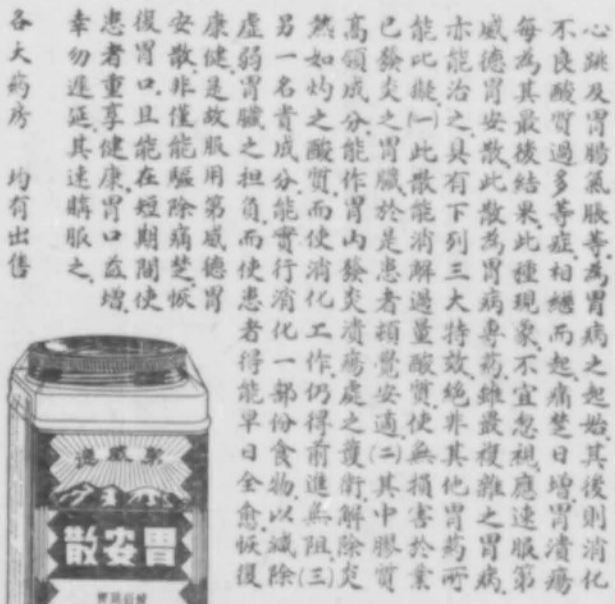 心跳及胃腸氣脹等，為胃病之起始，其後則消化
不良，酸質過多等症，相繼而起，痛楚日增，胃潰瘍
每為其最後結果，此種現象，不宜忽視，應速服第
威德胃安散，此散為胃病專药，雖最複雜之胃病，
亦能治之，具有下列三大特效，絶非其他胃药所
能此擬，(一)此散能消解過量酸質，使無損害於業
已發炎之胃臟，於是患者頓覺安適，(二)其中膠質
高嶺成分，能作胃內發炎潰瘍處之護衛，解除炎
熱如灼之酸質，而使消化工作，仍得前進無阻，(三)
另一名貴成分，能實行消化一部份食物，以減除
虛弱胃臟之担負，而使患者得能早日全愈，恢復
康健，是故服用第威德胃
安散，非僅能驅除痛楚，恢
復胃口，且能在短期間使
患者重享健康，胃口益增，
幸勿遲延，其速購服之，
各大药房　均有出售
德威第
散安胃